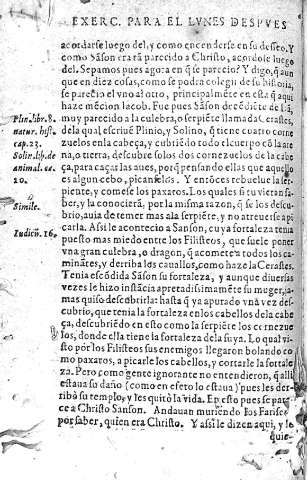 EXERC. PARA EL LVNES DESPVES
acordarse luego del, y como encenderse en su desseo. Y
como Sanson era tā parecido a Christo, acordose luego
del. Sepamos pues agora en q̄ se parecio? Y digo, q̄ aun
que en diez cosas, como se podra colegir de su historia,
se parecio el vno al otro, principalmēte en esta q̄ aqui
haze mēcion Iacob. Fue pues Sāson decēdiēte de Dā,
muy parecido a la culebra, o serpiēte llamada Cerastes,
de la qual escriuē Plinio, y Solino, q̄ tiene cuatro corne
zuelos en la cabeça, y cubriēdo todo el cuerpo cō la are
na, o tierra, descubre solos dos cornezuelos de la cabe
ça, para caçar las aues, porq̄ pensando ellas que aquello
es algun cebo, pican en los. Y entōces rebuelue la ser-
piente, y comese los paxaros. Los quales si tuuieran sa-
ber, y la conocierā, por la misma razon, q̄ se les descu-
brio, auia de temer mas a la serpiēte, y no atreuerse a pi
carla. Assi le acontecio a Sanson, cuya fortaleza tenia
puesto mas miedo entre los Filisteos, que suele poner
vna gran culebra, o dragon, q̄ acomete a todos los ca-
minātes, y derriba los cauallos, como haze la Cerastes.
Tenia escōdida Sāson su fortaleza, y aunque diuersas
vezes le hizo instācia apretadissimamēte su muger, ja-
mas quiso descubrirla: hasta q̄ ya apurado vna vez des-
cubrio, que tenia la fortaleza en los cabellos de la cabe
ça, descubriēdo en esto como la serpiēte los cornezue-
los, donde ella tiene la fortaleza de la suya. Lo qual vi-
sto por los Filisteos sus enemigos llegaron bolando co
mo paxaros, a picarle los cabellos, y cortarle la fortale
za. Pero como gente ignorante no entendieron, q̄ alli
estaua su daño (como en efeto lo estaua) pues les der-
ribò su templo, y les quitò la vida. En esto pues se pare
ce a Christo Sanson. Andauan muriendo los Farise
por saber, quien era Christo. Y assi le dizen aqui, y le
quie-
Plin. libr. 8.
natur. hist.
cap. 23.
Solin. lib. de
animal. ca.
20.
Simile.
Iudicū. 16.